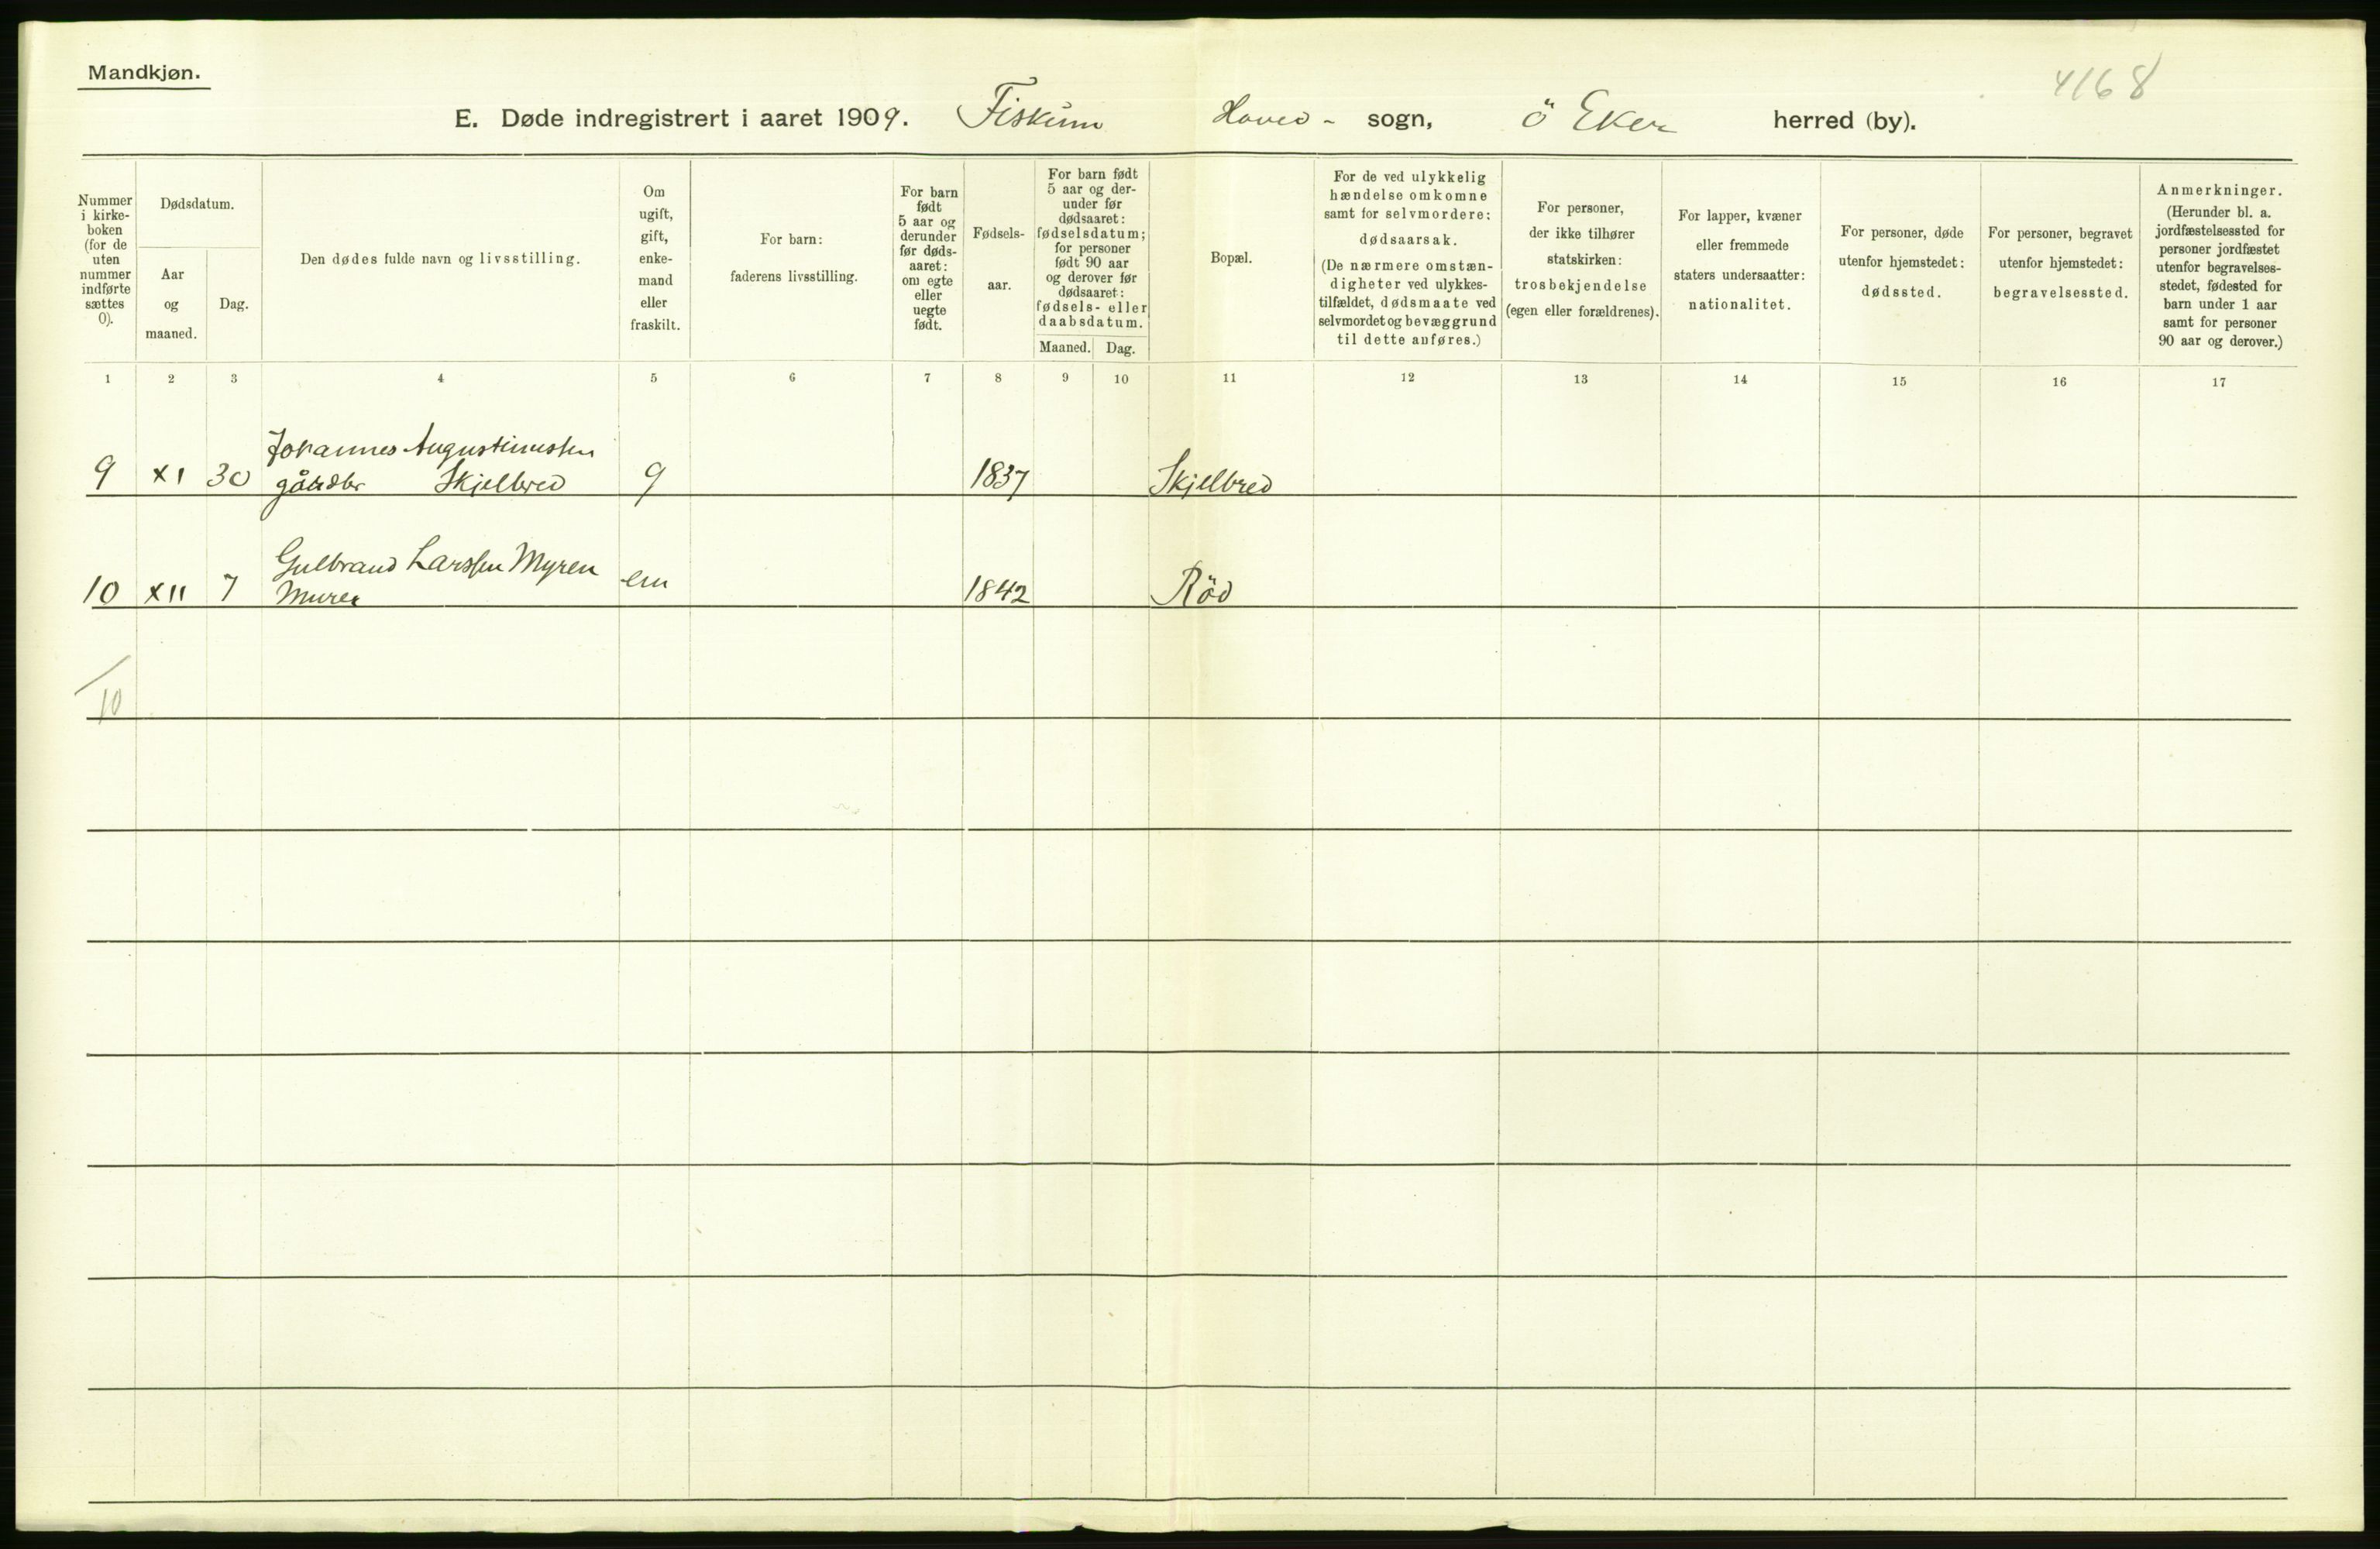 Mandkjøn.
4168
E. Døde indregistrert i aaret 1909. Fiskum Hoved- sogn, Ö Eker herred (by).
Nummer
i kirke-
boken
(for de
uten
nummer
indførte
sættes
0).
Dødsdatum.
Aar
og
maaned.
Dag.
Den dødes fulde navn og livsstilling.
Om
ugift,
gift,
enke-
mand
eller
fraskilt.
For barn:
faderens livsstilling.
For barn
født
5 aar og
derunder
før døds-
aaret:
om egte
eller
uegte
født.
Fødsels-
aar.
For barn født
5 aar og der-
under før
dødsaaret:
fødselsdatum;
for personer
født 90 aar
og derover før
dødsaaret:
fødsels- eller
daabsdatum.
Maaned. Dag.
Bopæl.
For de ved ulykkelig
hændelse omkomne
samt for selvmordere:
dødsaarsak.
(De nærmere omstæn-
digheter ved ulykkes-
tilfældet, dødsmaate ved
selvmordet og bevæggrund
til dette anføres.)
For personer,
der ikke tilhører
statskirken:
trosbekjendelse
(egen eller forældrenes).
For lapper, kvæner
eller fremmede
staters undersaatter:
nationalitet.
For personer, døde
utenfor hjemstedet:
dødssted.
For personer, begravet
utenfor hjemstedet:
begravelsessted.
Anmerkninger.
(Herunder bl. a.
jordfæstelsessted for
personer jordfæstet
utenfor begravelses-
stedet, fødested for
barn under 1 aar
samt for personer
90 aar og derover.)
1 2 3 4 5 6 7 8 9 10 11 12 13 14 15 16 17
Johannes Augustinussen
9 XI 30 gårdbr Skjelbred g 1837 Skjelbred
Gulbrand Larssen Myren
10 XII 7 Murer em 1842 Röd
10